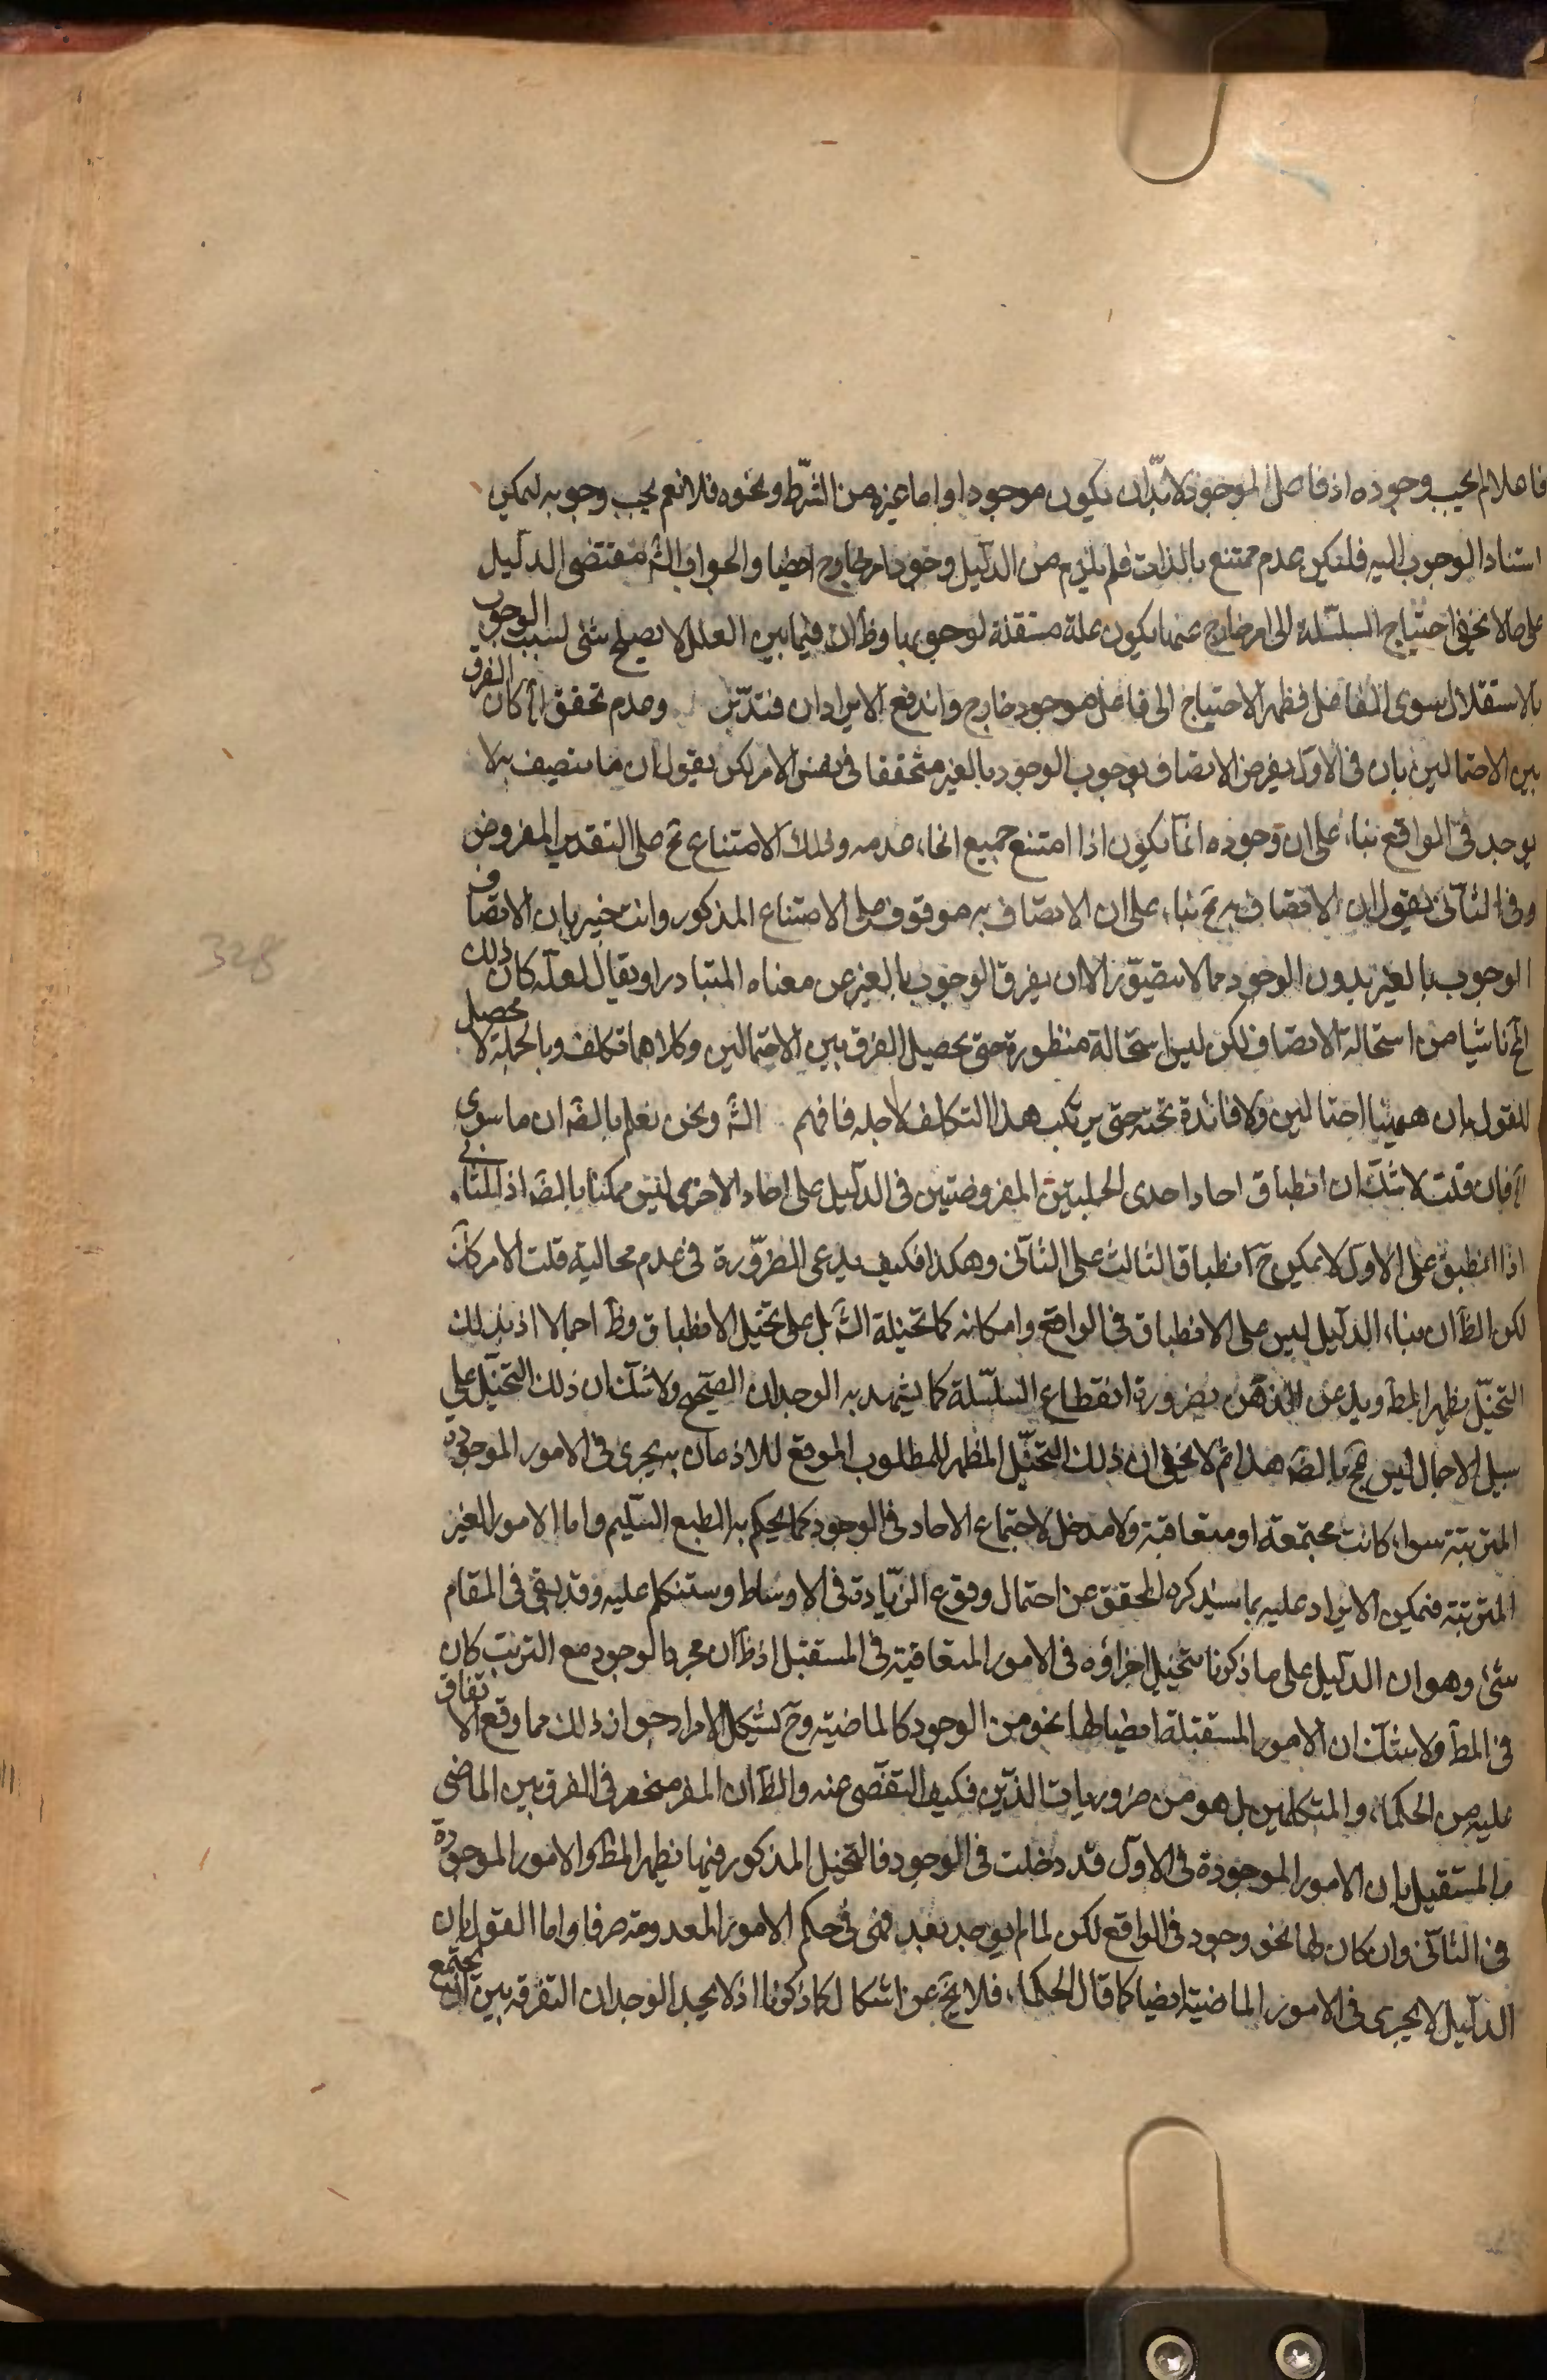 فاعلا لم يجب وجوده اذ فاعل الموجود لابدّ ان يكون موجودا واما غيره من الشرّط ونحوه فلا نعم يجب وجوبه ليمكن
استناد الوجوب اليه فلتكن عدم ممتنع بالذات فلم يلزم من الدليل وجود امر خارج ايضا والجواب انّ مقتضى الدليل
على ما لا يخفى احتياج السلسّلة الى امر خارج عنها يكون علة مستقلة لوجوبها وظ ان فيما بين العلل لا يصلح شئ لسبب الوجوب
بالاستقلال سوى الفاعل فظهر الاحتياج الى فاعل موجود خارج واندفع الايرادان فتدبّر وعدم تحقق اه كان الفرق
بين الاحتمالين بان في الاول يفرض الاتصاف بوجوب الوجود بالغير متحققا في نفس الامر لكن يقول ان ما يتصف به لا
يوجد في الواقع بناء على ان وجوده انما يكون اذا امتنع جميع انحاء عدمه وذلك الامتناع مح على التقدير المفروض
وفي الثاني يقول ان الاتصاف به مح بناء على ان الاتصاف به موقوف على الامتناع المذكور وانت خبير بان الاتصاف
الوجوب بالغير بدون الوجود مما لا يتصوّر الا ان يفرق الوجوب بالغير عن معناه المتبادر او يقال لعله كان ذلك
المح ناشيا من استحالة الاتصاف لكن ليس استحالة منظورة حتى يحصل الفرق بين الاحتمالين وكلاهما تكلف وبالجملة لا محصل
للقول بان ههنا احتمالين ولا فائدة تحته حتى يرتكب هذا التكلف لاجله فافهم الش ونحن نعلم بالضّ ان ما سوى
اه فان قلت لا شك ان انطباق احاد احدى الجملتين المفروضتين في الدليل على احاد الاخرى ليس ممكنا بالضّ اذ الثاني
اذا انطبق على الاول لا يمكن ح انطباق الثالث على الثاني وهكذا فكيف يدعى الضرّورة في عدم محالية قلت الامر كك
لكن الظ ان بناء الدليل ليس على الانطباق في الواقع وامكانه كما تخيله الش بل على تخيّل الانطباق وظ اجمالا اذ بذلك
التخيّل يظهر المط ويذعن الذهن بضرورة انقطاع السلسّلة كما يشهد به الوجدان الصّحيح ولا شك ان ذلك التخيل على
سبيل الاجمال ليس مح بالضّ هذا ثم لا يخفى ان ذلك التخيّل المظهر للمطلوب الموقع للاذعان به يجرى في الامور الموجودة
المترتبة سواء كانت مجتمعة او متعاقبة ولا مدخل لاجتماع الاحاد في الوجود كما يحكم به الطبع السّليم واما الامور الغير
المترتبة فيمكن الايراد عليه بما سيذكره المحقق من احتمال وقوع الزّيادة في الاوساط وستتكلم عليه وقد بقي في المقام
شئ وهو ان الدليل على ما ذكرنا يتخيل اجراؤه في الامور المتعاقبة في المستقبل اذ ظ ان مجرد الوجود مع الترتب كان
في المط ولا شك ان الامور المستقبلة ايضا لها نحو من الوجود كالماضية وح يشكل الامر اذ جواز ذلك مما وقع الاتفاق
عليه من الحكماء والمتكلمين بل هو من ضروريات الدّين فكيف التفصّى عنه والظ ان المفر منحصر في الفرق بين الماضى
والمستقبل بان الامور الموجودة في الاول قد دخلت في الوجود فالتخيل المذكور فيها يظهر المط والامور الموجودة
في الثاني وان كان لها نحو وجود في الواقع لكن لما لم يوجد بعد فهى في حكم الامور المعدومة صرفا واما القول بان
الدليل لا يجرى في الامور الماضية ايضا كما قال الحكماء فلا يخ عن اشكال كما ذكرنا اذ لا يجد الوجدان التفرقة بين المجتمع
328